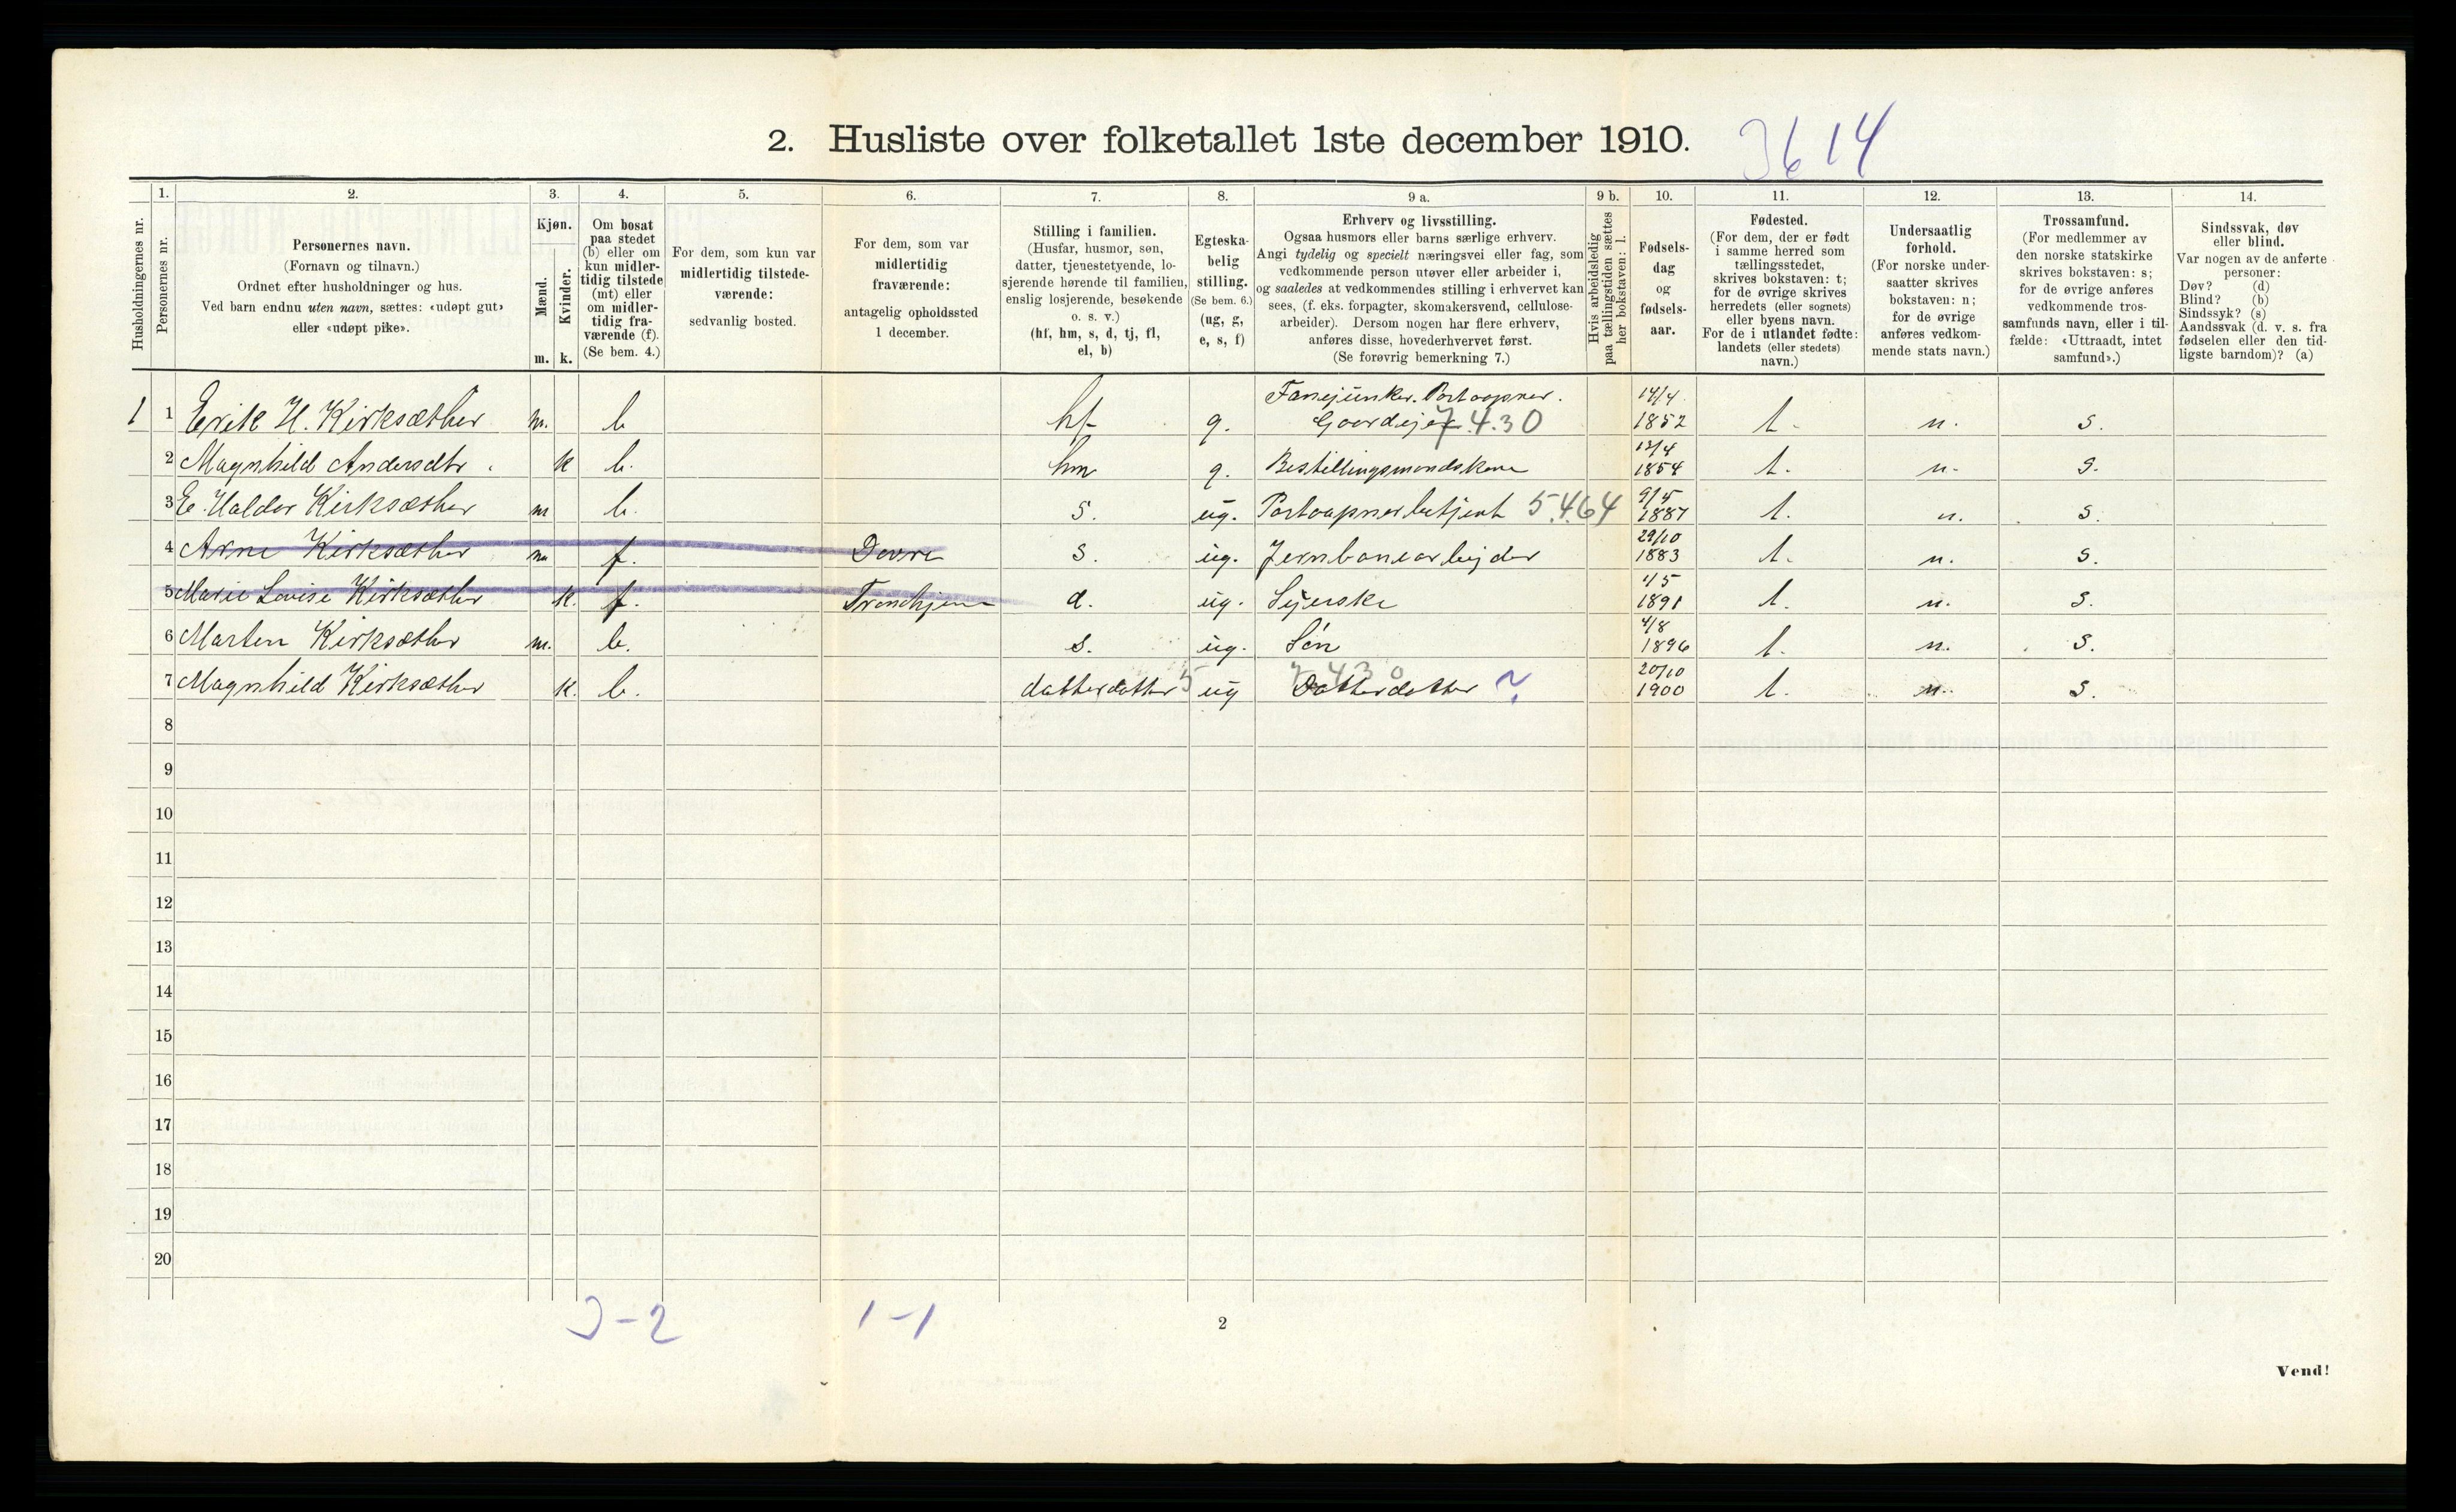 2. Husliste over folketallet 1ste december 1910. 3614
Husholdningernes nr.
1.
Personernes nr.
2.
Personernes navn.
(Fornavn og tilnavn.)
Ordnet efter husholdninger og hus.
Ved barn endnu uten navn, sættes: «udøpt gut»
eller «udøpt pike».
3.
Kjøn.
Mænd.
m.
Kvinder.
k.
4.
Om bosat
paa stedet
(b) eller om
kun midler-
tidig tilstede
(mt) eller
om midler-
tidig fra-
værende (f).
(Se bem. 4.)
5.
For dem, som kun var
midlertidig tilstede-
værende:
sedvanlig bosted.
6.
For dem, som var
midlertidig
fraværende:
antagelig opholdssted
1 december.
7.
Stilling i familien.
(Husfar, husmor, søn,
datter, tjenestetyende, lo-
sjerende hørende til familien,
enslig losjerende, besøkende
o. s. v.)
(hf, hm, s, d, tj, fl,
el, b)
8.
Egteska-
belig
stilling.
(Se bem. 6.)
(ug, g,
e, s, f)
9 a.
Erhverv og livsstilling.
Ogsaa husmors eller barns særlige erhverv.
Angi tydelig og specielt næringsvei eller fag, som
vedkommende person utøver eller arbeider i,
og saaledes at vedkommendes stilling i erhvervet kan
sees, (f. eks. forpagter, skomakersvend, cellulose-
arbeider). Dersom nogen har flere erhverv,
anføres disse, hovederhvervet først.
(Se forøvrig bemerkning 7.)
9 b.
Hvis arbeidsledig
paa tællingstiden sættes
her bokstaven: l.
10.
Fødsels-
dag
og
fødsels-
aar.
11.
Fødested.
(For dem, der er født
i samme herred som
tællingsstedet,
skrives bokstaven: t;
for de øvrige skrives
herredets (eller sognets)
eller byens navn.
For de i utlandet fødte:
landets (eller stedets)
navn.)
12.
Undersaatlig
forhold.
(For norske under-
saatter skrives
bokstaven: n;
for de øvrige
anføres vedkom-
mende stats navn.)
13.
Trossamfund.
(For medlemmer av
den norske statskirke
skrives bokstaven: s;
for de øvrige anføres
vedkommende tros-
samfunds navn, eller i til-
fælde: «Uttraadt, intet
samfund».)
14.
Sindssvak, døv
eller blind.
Var nogen av de anførte
personer:
Døv? (d)
Blind? (b)
Sindssyk? (s)
Aandssvak (d. v. s. fra
fødselen eller den tid-
ligste barndom)? (a)
1 1 Erik H. Kirksæther m. b hf g. Fanejunker. Postaapner. Gaardejer 7.4.30 14/4 1852 t. n. s.
2 Magnhild Andersdtr. k b. hm g. Bestillingsmandskone 13/4 1854 t. n. s.
3 E. Haldor Kirksæther m b. s. ug. Postaapnerbetjent 5.464 9/5 1887 t. n. s.
4 Arne Kirksæther m f. Dovre s. ug. Jernbanearbejder 29/10 1883 t. n. s.
5 Marie Lovise Kirksæther k. f. Trondhjem d. ug. Syerske 4/5 1891 t. n. s.
6 Marten Kirksæther m. b. s. ug. Søn 4/8 1896 t. n. s.
7 Magnhild Kirksæther k. b. datterdatter 5 ug Datterdatter 7 4 3 0 ? 20/10 1900 t. n. s.
8
9
10
11
12
13
14
15
16
17
18
19
20
3-2 1-1
2
Vend!